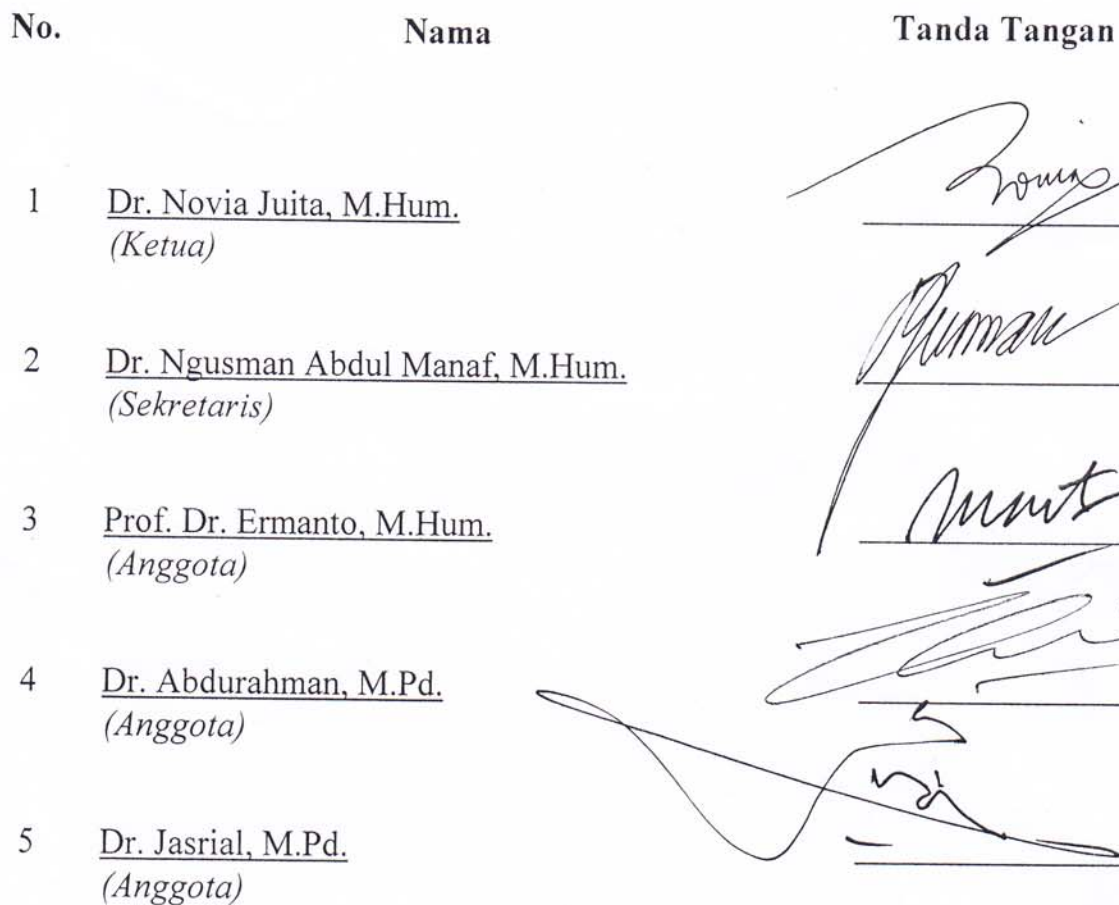 No. Nama Tanda Tangan
1 Dr. Novia Juita, M.Hum.
(Ketua)
2 Dr. Ngusman Abdul Manaf, M.Hum.
(Sekretaris)
3 Prof. Dr. Ermanto, M.Hum.
(Anggota)
4 Dr. Abdurahman, M.Pd.
(Anggota)
5 Dr. Jasrial, M.Pd.
(Anggota)